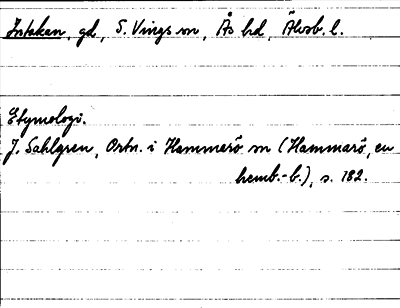 Intakan, gd, S. Vings sn, Ås hd, Älvsb. l.
Etymologi.
J. Sahlgren, Ortn. i Hammarö sn (Hammarö, en
hemb.-b.), s. 182.